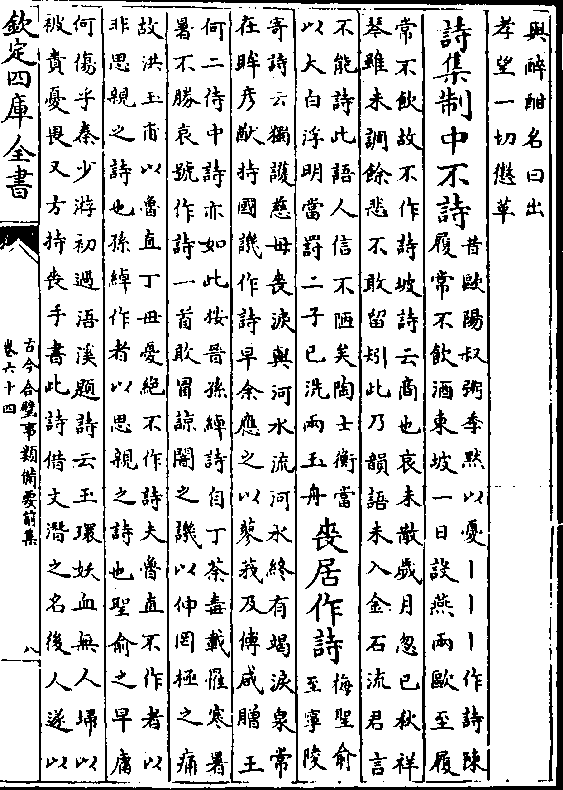 興醉酣名曰出
孝望一切懲革
詩集制中不詩
昔歐陽叔弼季黙以憂丨丨丨作詩陳
履常不飲酒東坡一日設燕兩歐至履
常不飲故不作詩坡詩云商也哀未散嵗月忽已秋祥
琴雖未調餘悲不敢留矧此乃韻語未入金石流君言
不能詩此語人信不陋矣陶士衡當
以大白浮明當罸二子已洗兩玉舟
喪居作詩
梅聖俞
至寧陵
寄詩云獨護慈母喪淚與河水流河水終有竭淚泉常
在眸彦猷持國譏作詩早余應之以蓼莪及傅咸贈王
何二侍中詩亦如此按晉孫綽詩自丁荼毒載罹寒署
暑不勝哀號作詩一首敢冒諒闇之譏以伸罔極之痛
故洪玉甫以魯直丁母憂絶不作詩夫魯直不作者以
非思親之詩也孫綽作者以思親之詩也聖俞之早庸
何傷乎秦少游初過浯溪題詩云玉環妖血無人掃以
被責憂畏又方持喪手書此詩借文潛之名後人遂以
欽定四庫全書
古今合璧事類備要前集
卷六十四
八